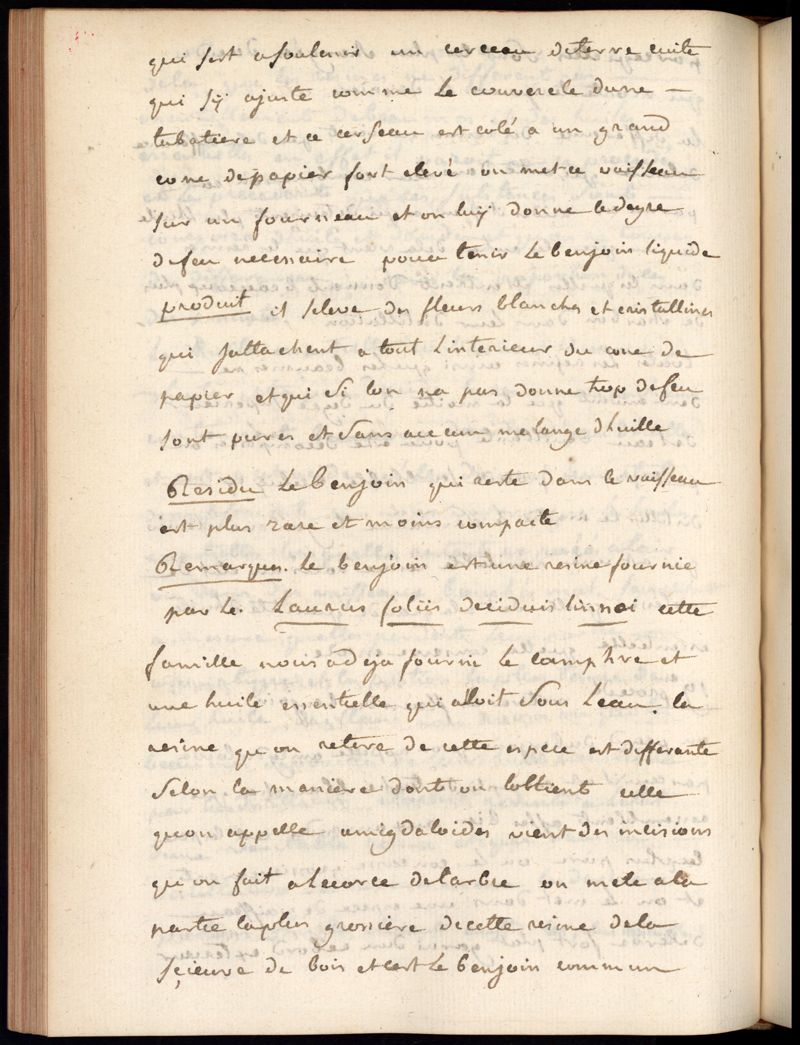 qui sert a soutenir un cerceau de terre cuite
qui sÿ ajuste comme Le couvercle dune –
tabatiere et ce cerseau est colé a un grand
cone de papier fort elevé on met ce vaisseau
sur un fourneau et on luÿ donne le degre
de feu necessaire pour tenir Le benjoin liquide
produit il seleve des fleurs blanches et cristallines
qui sattachent a tout Linterieur du cone de
papier et qui si lon na pas donne trop de feu
sont pures et sans aucun melange dhuille
Residu Le benjoin qui reste dans le vaisseau
est plus rare et moins compacte
Remarques. Le benjoin est une resine fournie
par Le. Laurus foliis deciduis linnei cette
famille nous a deja fourni Le camphre et
une huile essentielle qui alloit sous Leau. la
resine quon retire de cette espece est differante
selon la maniere dont on lobtient celle
quon appelle amigdaloides vient des incisions
quon fait a Lecorce de larbre on mele a la
partie la plus grossiere de cette resine de la
scieure de bois et cest Le benjoin commun